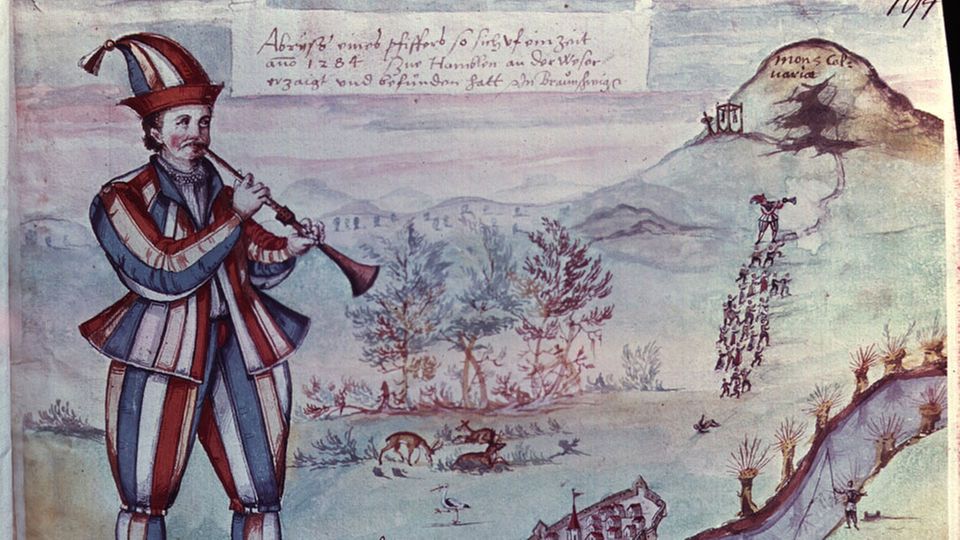 Abryss eines pfiffers so sich vf ein Zeit
año 1284 Zue Hamblen an der Weser
erzaigt und befunden hatt In Braunschweig
mons Cal-
varia